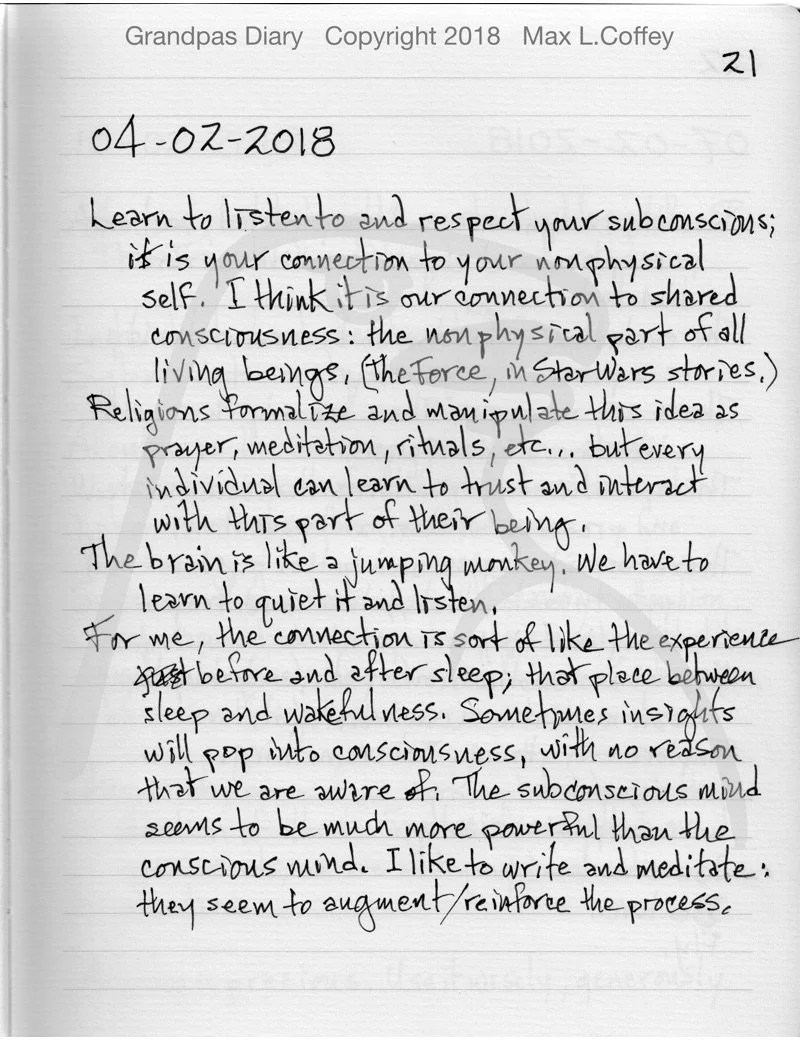 Grandpas Diary Copyright 2018 Max L.Coffey
21
04-02-2018
Learn to listen to and respect your subconscious;
it is your connection to your nonphysical
self. I think it is our connection to shared
consciousness: the nonphysical part of all
living beings. (the Force, in Star Wars stories.)
Religions formalize and manipulate this idea as
prayer, meditation, rituals, etc... but every
individual can learn to trust and interact
with this part of their being.
The brain is like a jumping monkey. We have to
learn to quiet it and listen.
For me, the connection is sort of like the experience
just before and after sleep; that place between
sleep and wakefulness. Sometimes insights
will pop into consciousness, with no reason
that we are aware of. The subconscious mind
seems to be much more powerful than the
conscious mind. I like to write and meditate:
they seem to augment/reinforce the process.